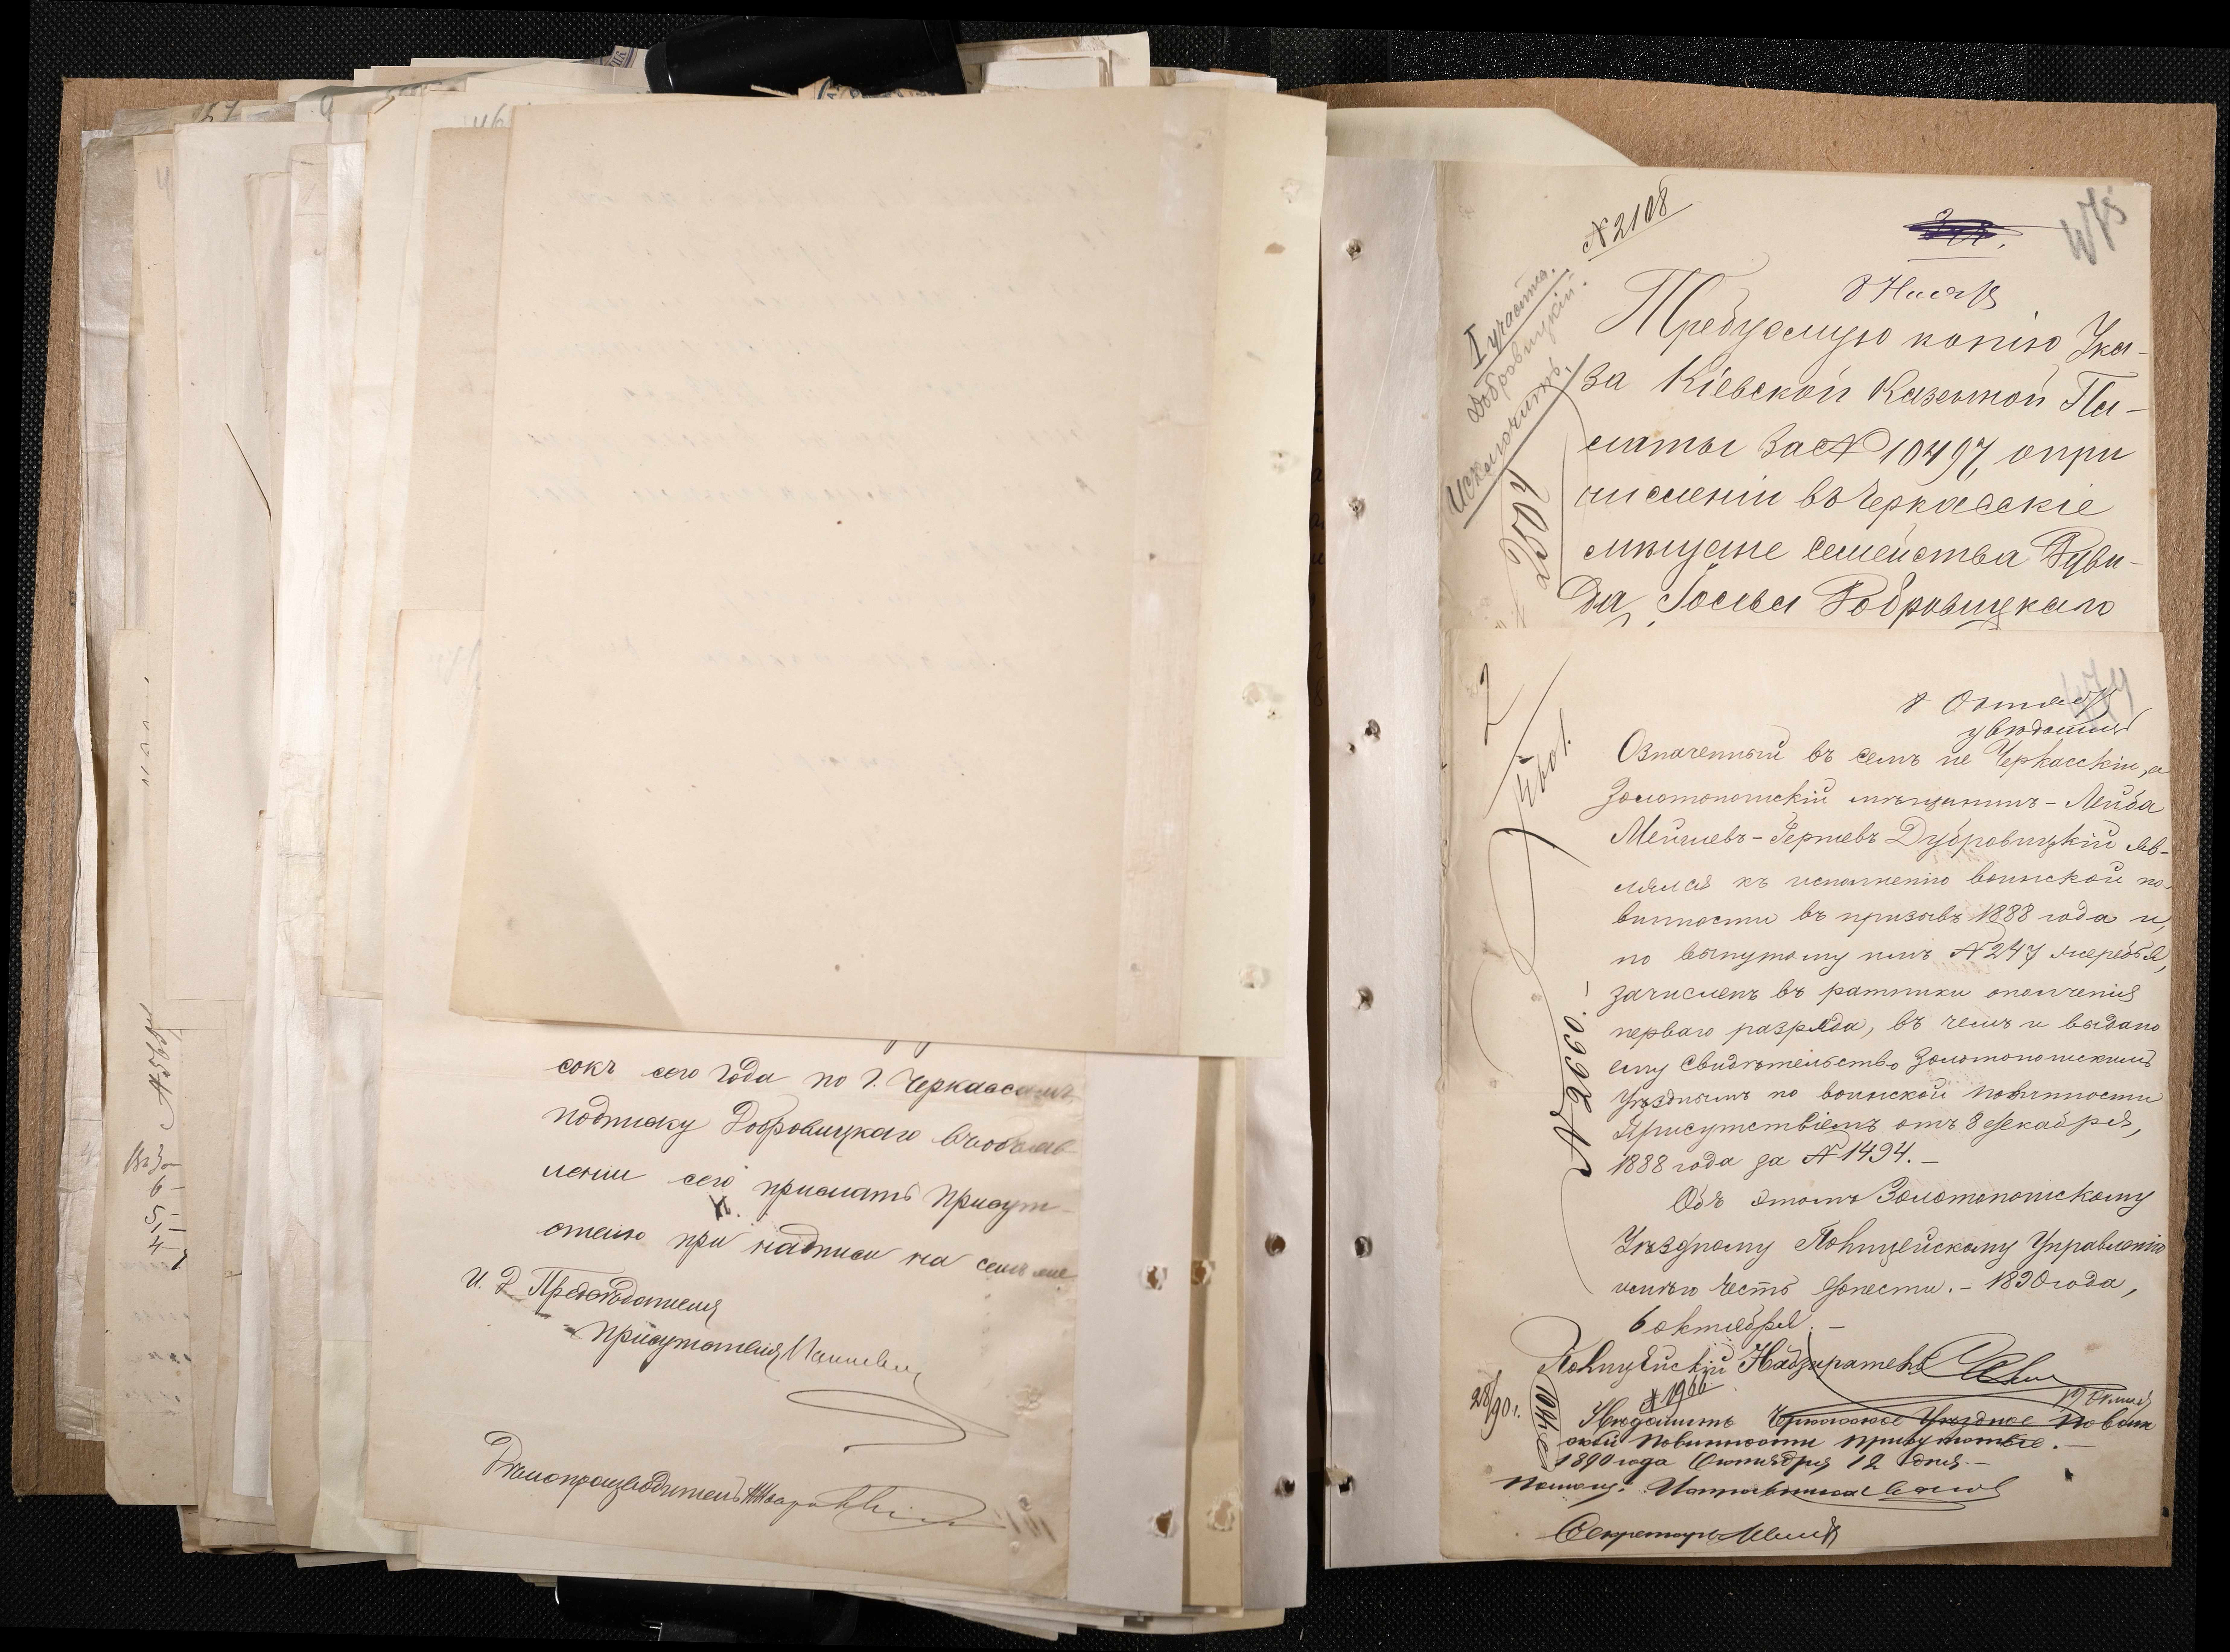 сокъ сего года по г. Черкассамъ,
подписку Добровицкаго въ объяв-
леніи сего прислать Присут-
ствію при надписи на семъ же
И. Д. Предсѣдателя
Присутствія
Дѣлопроизводитель
N 2108
I участка.
Добровицкій.
Исключить.
Требуемую копію Ука-
за Кіевской Казенной Па-
латы за N 10497, о при
численіи въ Черкасскіе
мѣщане семейства Дуви-
да, Іосься Добровицкаго
2
8 Октяб
увѣдомить
Означенный въ семъ не Черкасскій, а
Золотоношскій мѣщанинъ - Лейба
Мейшевъ-Гершевъ Дубровицкій яв-
лялся къ исполненію воинской по-
винности въ призывъ 1888 года и,
по вынутому имъ N 247 жеребья,
зачисленъ въ ратники ополченія
перваго разряда, въ чемъ и выдано
ему свидѣтельство Золотоношскимъ
Уѣзднымъ по воинской повинности
Присутствіемъ отъ 8 декабря,
1888 года за N 1494. -
Объ этомъ Золотоношскому
Уѣздному Полицейскому Управленію
имѣю честь донести. - 1890 года,
6 октября. -
Полицейскій Надзиратель
N 1966
28/90 г.
Увѣдомить Черкасское Уѣздное по воин
ской повинности присутствіе. -
1890 года Октября 12 дня. -
Помощ. Исправника
Секретарь